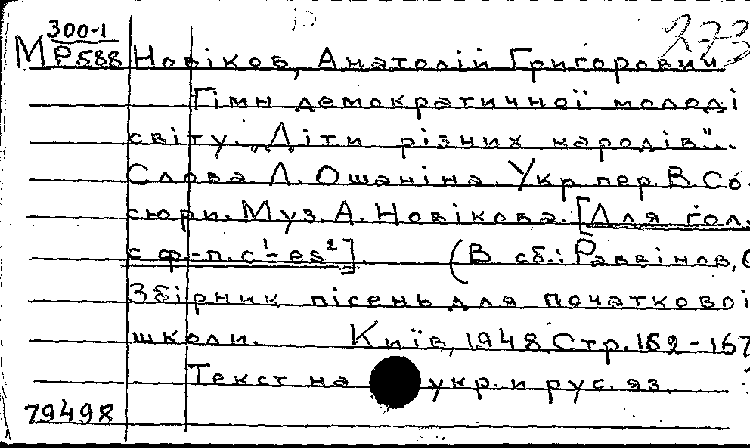 273
300-1
М Р588 Новіков, Анатолій Григорович
Гімн демократичної молоді
світу. „Діти різних народів".
Слова Л. Ошаніна. Укр. пер. В. Со-
сюри. Муз. А. Новікова. [Для гол.
с ф.-п. c¹-es²]. (В сб.:
Збірник пісень для початкової
школи. Київ, 1948. Стр. 162-167
Текст на укр. и рус. яз.
79498